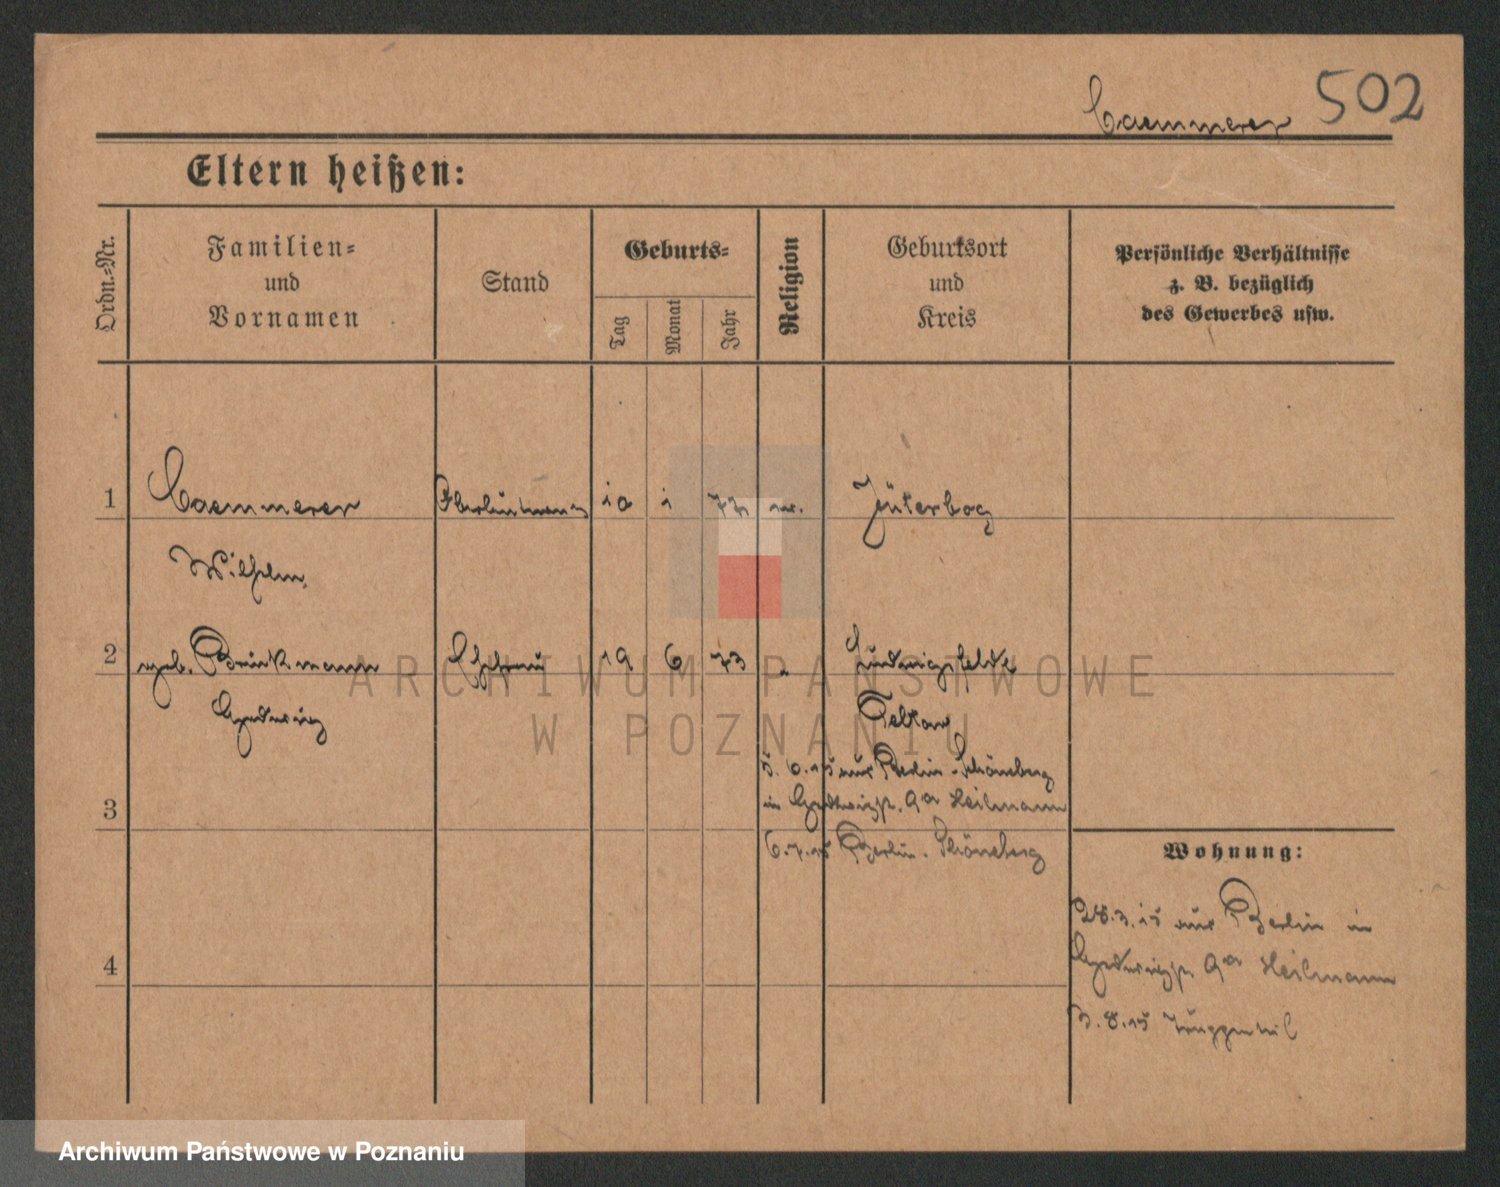 Caemmerer 502
Eltern heißen:
Ordn.-Nr.
Familien-
und
Vornamen
Stand
Geburts-
Tag
Monat
Jahr
Religion
Geburtsort
und
Kreis
Persönliche Verhältnisse
z. B. bezüglich
des Gewerbes usw.
1 Caemmerer 10 1 Jüterbog
Wilhelm
2 geb. Brinkmann Ehefrau 19 6 73 " Ludwigsfelde
Hedwig Teltow
5. 6. 15 aus Berlin-Schöneberg
3 in Hedwigstr. 9a Heilmann
6. 7. 15 Berlin-Schöneberg
Wohnung:
28. 3. 15 aus Berlin in
4 Hedwigstr. 9a Heilmann
3. 8. 15
ARCHIWUM PAŃSTWOWE
W POZNANIU
Archiwum Państwowe w Poznaniu